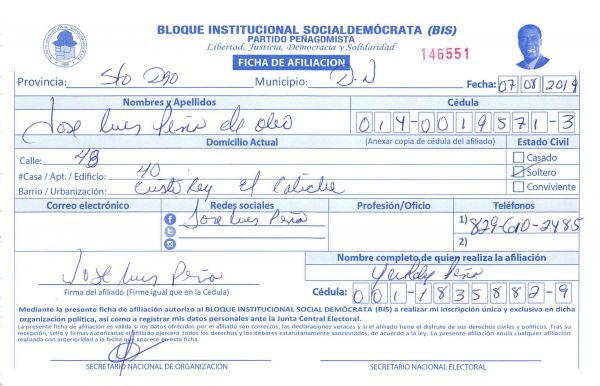 BLOQUE INSTITUCIONAL SOCIALDEMÓCRATA (BIS)
PARTIDO PEÑAGOMISTA
Libertad, Justicia, Democracia y Solidaridad
FICHA DE AFILIACION
146551
Provincia: Sto Dgo Municipio: D.N Fecha: 07 08 2019
Nombres y Apellidos Cédula
Jose Luis Peña de oleo 014-0019571-3
Domicilio Actual (Anexar copia de cédula del afiliado) Estado Civil
Calle: 43 Casado
#Casa / Apt. / Edificio: 40 Soltero
Barrio / Urbanización: Cristo Rey El Caliche Conviviente
Correo electrónico Redes sociales Profesión/Oficio Teléfonos
Jose Luis Peña 1) 829-610-2485
2)
Nombre completo de quien realiza la afiliación
Jose Luis Peña Peña
Firma del afiliado (Firme igual que en la Cédula) Cédula: 001-1835882-9
Mediante la presente ficha de afiliación autorizo al BLOQUE INSTITUCIONAL SOCIAL DEMÓCRATA (BIS) a realizar mi inscripción única y exclusiva en dicha
organización política, así como a registrar mis datos personales ante la Junta Central Electoral.
La presente ficha de afiliación es válida si los datos ofrecidos por el afiliado son correctos, las declaraciones veraces y si el afiliado tiene el disfrute de sus derechos civiles y políticos. Tras su
recepción, sello y firmas autorizadas el afiliado ejercerá todos los derechos y los deberes estatutariamente sancionados, de acuerdo a la ley. La presente afiliación anula cualquier afiliación
realizada con anterioridad a la fecha que aparece en esta ficha.
SECRETARIO NACIONAL DE ORGANIZACIÓN SECRETARIO NACIONAL ELECTORAL